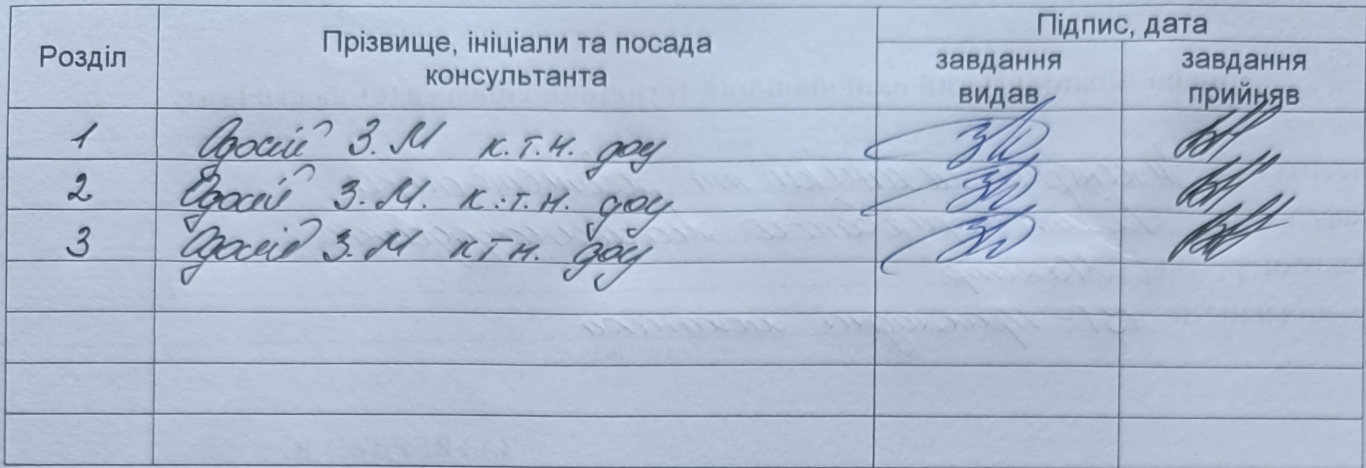 Розділ
Прізвище, ініціали та посада
консультанта
Підпис, дата
завдання
видав
завдання
прийняв
1 Одосій З.М к.т.н. доц
2 Одосій З.М. к.т.н. доц
3 Одосій З.М ктн. доц